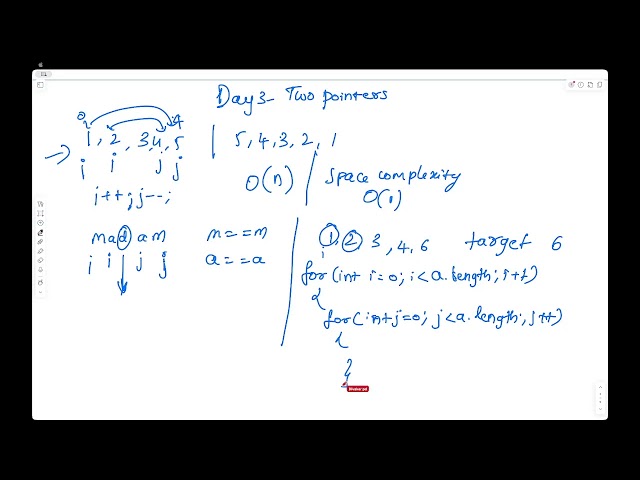 Day3- Two pointers
0 4
1, 2, 3, 4, 5 | 5, 4, 3, 2, 1
i i j j
i++; j--;
O(n)
Space complexity
O(1)
madam
i i j j
m==m
a==a
1, 2, 3, 4, 6 target 6
i
for(int i=0; i<a.length; i++)
{
for(int j=0; j<a.length; j++)
{
}